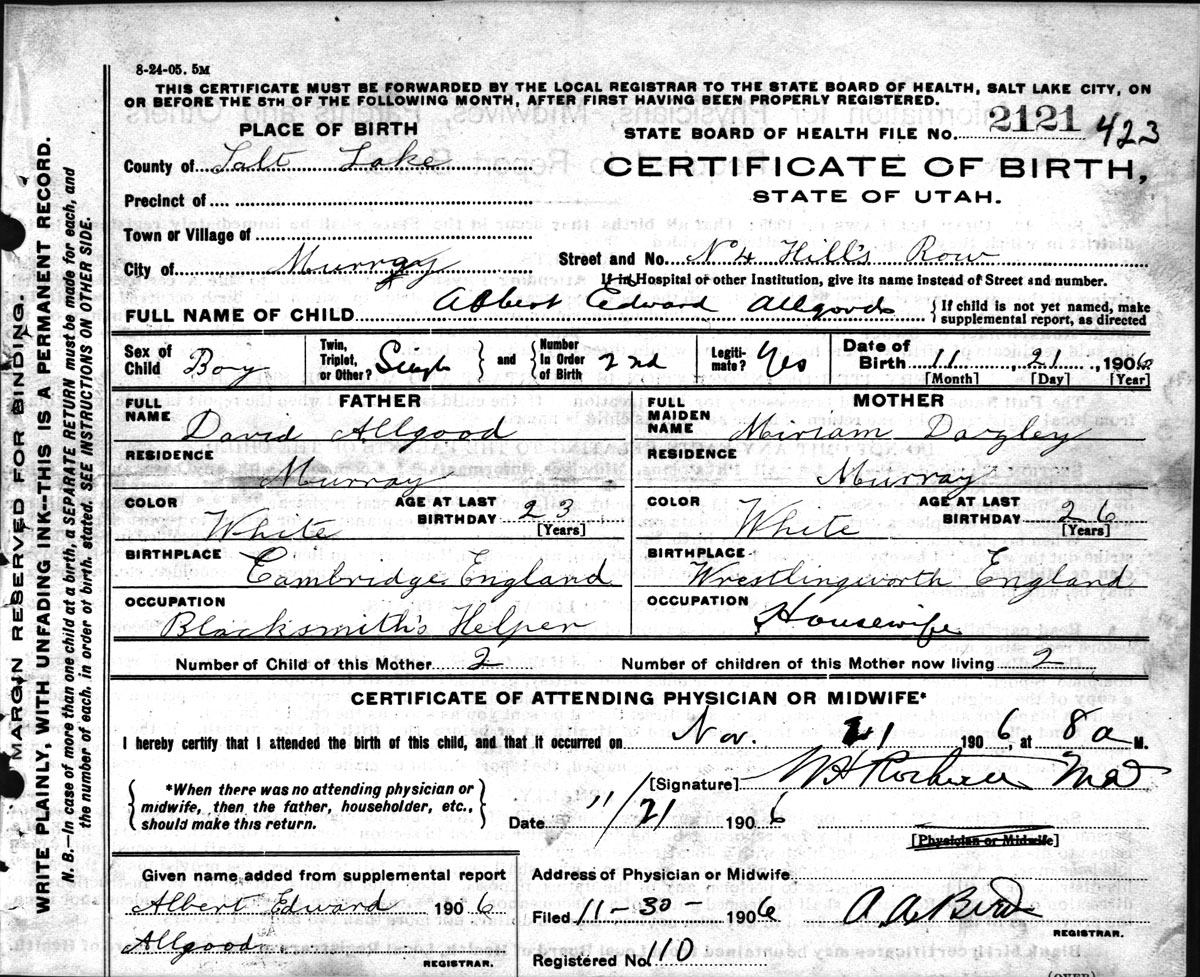 8-24-05. 5M
THIS CERTIFICATE MUST BE FORWARDED BY THE LOCAL REGISTRAR TO THE STATE BOARD OF HEALTH, SALT LAKE CITY, ON
OR BEFORE THE 5TH OF THE FOLLOWING MONTH, AFTER FIRST HAVING BEEN PROPERLY REGISTERED.
PLACE OF BIRTH
STATE BOARD OF HEALTH FILE No. 2121 423
County of Salt Lake
CERTIFICATE OF BIRTH,
STATE OF UTAH.
Precinct of
Town or Village of
City of Murray
Street and No. N 4 Hill's Row
If in Hospital or other Institution, give its name instead of Street and number.
FULL NAME OF CHILD Albert Edward Allgood {If child is not yet named, make
supplemental report, as directed
Sex of Child Boy Twin, Triplet, or Other? Single } and { Number In Order of Birth 2nd Legitimate? Yes Date of Birth 11, 21, 1906
[Month] [Day] [Year]
FATHER
FULL NAME David Allgood
RESIDENCE
Murray
COLOR White AGE AT LAST BIRTHDAY 23
[Years]
BIRTHPLACE
Cambridge England
OCCUPATION
Blacksmith's Helper
MOTHER
FULL MAIDEN NAME Miriam Dazley
RESIDENCE
Murray
COLOR White AGE AT LAST BIRTHDAY 26
[Years]
BIRTHPLACE
Wrestlingworth England
OCCUPATION
Housewife
Number of Child of this Mother 2 Number of children of this Mother now living 2
CERTIFICATE OF ATTENDING PHYSICIAN OR MIDWIFE*
I hereby certify that I attended the birth of this child, and that it occurred on Nov. 21 1906, at 8 a M.
{*When there was no attending physician or
midwife, then the father, householder, etc.,
should make this return.}
[Signature]
Date 11/21 1906
[Physician or Midwife]
Given name added from supplemental report
Albert Edward 1906
Allgood
REGISTRAR.
Address of Physician or Midwife
Filed 11-30-1906 A A Bird
REGISTRAR.
Registered No. 110
(OVER)
MARGIN RESERVED FOR BINDING.
WRITE PLAINLY, WITH UNFADING INK--THIS IS A PERMANENT RECORD.
N. B.—In case of more than one child at a birth, a SEPARATE RETURN must be made for each, and
the number of each, in order of birth, stated. SEE INSTRUCTIONS ON OTHER SIDE.